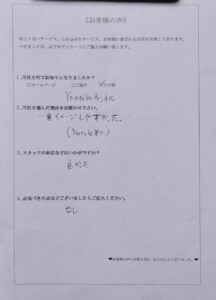 《お客様の声》
1.当社を何でお知りになりましたか？
□ホームページ □ご紹介 ☑その他
Youtubeチャンネル
2.当社を選んだ理由をお聞かせ下さい。
一番イメージしやすかった。
(Youtube等で)
3.スタッフの対応などはいかがですか？
良かった
4.お気づきの点などございましたらご記入ください。
なし